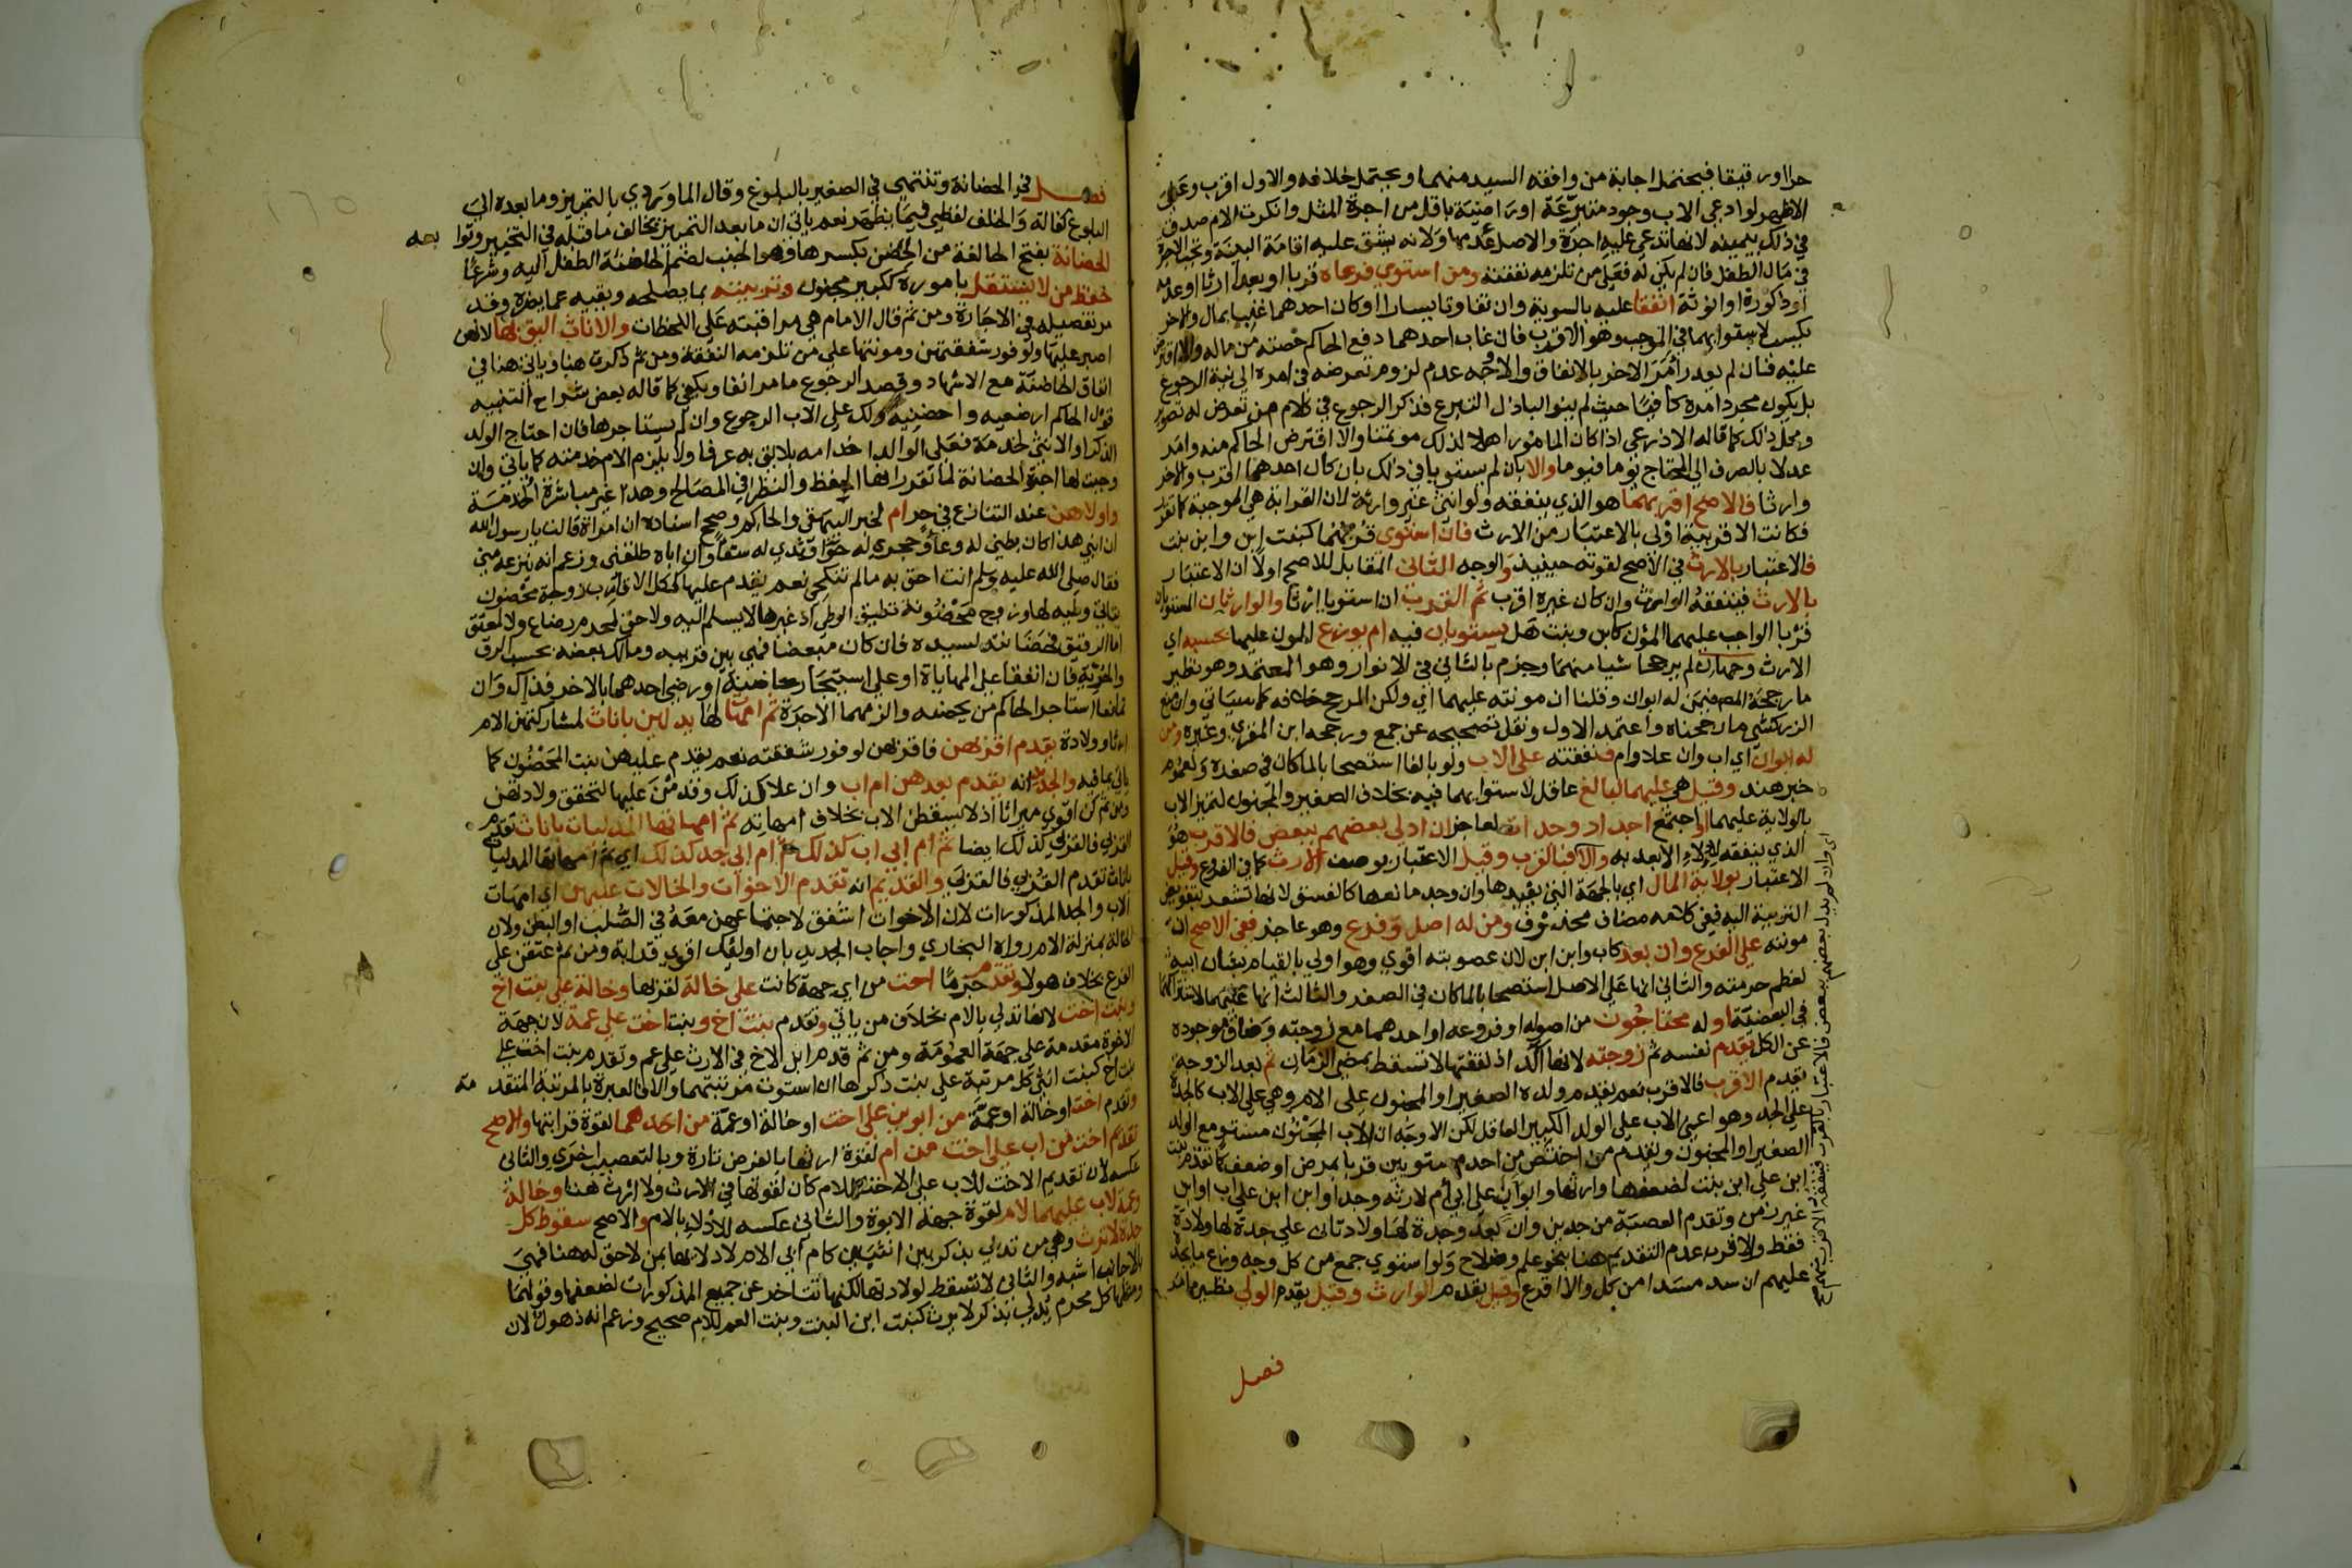 حرا اورقيقا فيحتمل اجابة من وافقه السيد منهما ويحتمل خلافه والاول اقرب وعلى
الاظهر لو ادعى الاب وجود متبرعة او راضية باقل من اجرة المثل وانكرت الام صدق
في ذلك بيمينه لانها تدعي عليه اجرة والاصل عدمها ولانه يشق عليه اقامة البينة وتجب الاجرة
في مال الطفل فان لم يكن له فعلى من تلزمه نفقته ومن استوى فرعاه قربا او بعدا ارثا او عدمه
او ذكورة او انوثة انفقا عليه بالسوية وان تفاوتا يسارا او كان احدهما غنيا بمال والاخر
بكسب لاستوائهما في الموجب وهو القرب فان غاب احدهما دفع الحاكم حصته من ماله والا اقترض
عليه فان لم يقدر أمر الاخر بالانفاق والاوجه عدم لزوم تعرضه في امره الى نية الرجوع
بل يكون مجرد امره كافيا حيث لم ينو الباذل التبرع فذكر الرجوع في كلام من تعرض له تصوير
ومحل ذلك كما قاله الاذرعي اذا كان المامور اهلا لذلك موتمنا والا اقترض الحاكم منه وامر
عدلا بالصرف الى المحتاج يوما فيوما والا بان لم يستويا في ذلك بان كان احدهما اقرب والاخر
وارثا فالاصح اقربهما هو الذي ينفقه ولو انثى غير وارثة لان القرابة هي الموجبة كما تقرر
فكانت الاقربية اولى بالاعتبار من الارث فان استوى قربهما كبنت ابن وابن بنت
فالاعتبار بالارث في الأصح لقوته حينيذ والوجه الثاني المقابل للاصح اولا ان الاعتبار
بالارث فينفقه الوارث وان كان غيره اقرب ثم القرب ان استويا ارثا والوارثان المستويان
قربا الواجب عليهما المون كابن وبنت هل يستويان فيه ام يوزع المون عليهما بحسبه اي
الارث وجهان لم يرجحا شيا منهما وجزم بالثاني في الانوار وهو المعتمد وهو نظير
ما رجحه المصنف فيمن له ابوان وقلنا ان مونته عليهما اي ولكن المرجح خلافه كما سياتي وان منع
الزركشي ما رجحناه واعتمد الاول ونقل تصحيحه عن جمع ورجحه ابن المقري وغيره ومن
له ابوان اي اب وان علا وام فنفقته على الاب ولو بالغا استصحابا لما كان في صغره ولعموم
خبر هند وقيل هي عليهما لبالغ عاقل لاستوائهما فيه بخلاف الصغير والمجنون لتميز الاب
بالولاية عليهما او اجتمع اجداد وجدات لعاجز ان ادلى بعضهم ببعض فالاقرب هو
الذي ينفقه لادلاء الابعد به والا فبالقرب وقيل الاعتبار بوصف الارث كما في الفروع وقيل
الاعتبار بولاية المال اي بالجهة التي تفيدها وان وجد مانعها كالفسق لانها تشعر بتفويض
التربية اليه ففي كلامه مضاف محذوف ومن له اصل وفرع وهو عاجز ففي الاصح ان
مونته على الفرع وان بعد كاب وابن ابن لان عصوبته اقوى وهو اولى بالقيام بشان ابيه
لعظم حرمته والثاني انها على الاصل استصحابا لما كان في الصغر والثالث انها عليهما لاشتراكهما
في البعضية او له محتاجون من اصوله او فروعه او احدهما مع زوجته وضاق موجوده
عن الكل يقدم نفسه ثم زوجته لانها آكد اذ نفقتها لا تسقط بمضي الزمان ثم بعد الزوجة
يقدم الاقرب فالاقرب نعم يقدم ولده الصغير او المجنون على الام وهي على الاب كالجدة
على الجد وهو اعني الاب على الولد الكبير العاقل لكن الاوجه ان الاب المجنون مستو مع الولد
الصغير او المجنون ويقدم من اختص من احد مستويين قربا بمرض او ضعف كما تقدم بنت
ابن على ابن بنت لضعفها وارثها وابو اب على ابي أم لارثه وجد او ابن ابن على اب او ابن
غير زمن وتقدم العصبة من جدين وان بعد وجدة لها ولادتان على جدة لها ولادة
فقط والاقرب عدم التقديم هنا بنحو علم وصلاح ولو استوى جمع من كل وجه وزع ما يجده
عليهم ان سد مسدا من كل والا اقرع وقيل يقدم الوارث وقيل يقدم الولي نظير ما مر
اي وان لم يدل بعضهم ببعض فالاعتبار بالقرب فينفقه الاقرب منهم صح
فصل
فصل في الحضانة وتنتهي في الصغير بالبلوغ وقال الماوردي بالتمييز وما بعده الى
البلوغ كفالة والخلف لفظي فيما يظهر نعم ياتي ان ما بعد التمييز يخالف ما قبله في التخيير وتوابعه
الحضانة بفتح الحا لغة من الحضن بكسرها وهو الجنب لضم الحاضنة الطفل اليه وشرعا
حفظ من لا يستقل باموره ككبير مجنون وتربيته بما يصلحه ويقيه عما يضره وقد
مر تفصيله في الاجارة ومن ثم قال الامام هي مراقبته على اللحظات والاناث اليق بها لانهن
اصبر عليها ولوفور شفقتهن ومونتها على من تلزمه النفقة ومن ثم ذكرت هنا وياتي هنا في
انفاق الحاضنة مع الاشهاد وقصد الرجوع ما مر انفا ويكفي كما قاله بعض شراح التنبيه
قول الحاكم ارضعيه واحضنيه ولك على الاب الرجوع وان لم يستاجرها فان احتاج الولد
الذكر او الانثى لخدمة فعلى الوالد اخدامه بلائق به عرفا ولا يلزم الام خدمته كما ياتي وان
وجبت لها اجرة الحضانة لما تقرر انها الحفظ والنظر في المصالح وهذا غير مباشرة الخدمة
واولاهن عند التنازع في حر ام لخبر البيهقي والحاكم وصحح اسناده ان امراة قالت يا رسول الله
ان ابني هذا كان بطني له وعا وحجري له حوا وثدي له سقا وان اباه طلقني وزعم انه ينزعه مني
فقال صلى الله عليه وسلم انت احق به ما لم تنكحي نعم يقدم عليها ككل الاقارب زوجة محضون
ياتي وليه لها وزوج محضونة تطيق الوطي اذ غيرها لا يسلم اليه ولا حق لمحرم رضاع ولا لمعتق
اما الرقيق فحضانته لسيده فان كان مبعضا فهي بين قريبه ومالك بعضه بحسب الرق
والحرية فان اتفقا على المهاياة او على استيجار حاضنة او رضي احدهما بالاخر فذاك وان
تمانعا استاجر الحاكم من يحضنه والزمهما الاجرة ثم امهات لها يدلين باناث لمشاركتهن الام
ارثا وولادة يقدم اقربهن فاقربهن لوفور شفقته نعم يقدم عليهن بنت المحضون كما
ياتي بما فيه والجديد انه يقدم بعدهن ام اب وان علا كذلك وقدمن عليها لتحقق ولادتهن
ومن ثم كن اقوى ميراثا اذ لا يسقطن الاب بخلاف امهاته ثم امهاتها المدليات باناث تقدم
القربى فالقربى كذلك ايضا ثم ام ابي اب كذلك ثم ام ابي جد كذلك اي ثم امهاتها المدليات
باناث تقدم القربى فالقربى والقديم انه تقدم الاخوات والخالات عليهن اي امهات
الاب والجد المذكورات لان الاخوات اشفق لاجتماعهن معه في الصلب او البطن ولان
الخالة بمنزلة الام رواه البخاري واجاب الجديد بان اوليك اقوى قرابة ومن ثم عتقن على
الفرع بخلاف هولا وتقدم جزما اخت من اي جهة كانت على خالة لقربها وخالة على بنت اخ
وبنت اخت لانها تدلي بالام بخلاف من ياتي وتقدم بنت اخ وبنت اخت على عمة لان جهة
الاخوة مقدمة على جهة العمومة ومن ثم قدم ابن الاخ في الارث على عم وتقدم بنت اخت على
بنت اخ كبنت انثى كل مرتبة على بنت ذكرها ان استوت مرتبتهما والا فالعبرة بالمرتبة المتقدمة
وتقدم اخت او خالة او عمة من ابوين على اخت او خالة او عمة من احدهما لقوة قرابتها والاصح
تقديم اخت من اب على اخت من ام لقوة ارثها بالفرض تارة وبالتعصيب اخرى والثاني
عكسه لان تقديم الاخت للاب على الاخت للام كان لقوتها في الارث ولا ارث هنا وخالة
وعمة لاب عليهما لام لقوة جهة الابوة والثاني عكسه للادلاء بالام والاصح سقوط كل
جدة لا ترث وهي من تدلي بذكر بين انثيين كام ابي الام لادلائها بمن لا حق له هنا فهي
بالاجانب اشبه والثاني لا تسقط لولادتها لكنها تتاخر عن جميع المذكورات لضعفها وقولنا
ومثلها كل محرم يدلي بذكر لا يرث كبنت ابن البنت وبنت العم للام صحيح وزعم انه ذهول لان